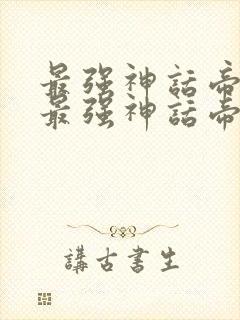 最强神話帝
最强神話帝
講古書生